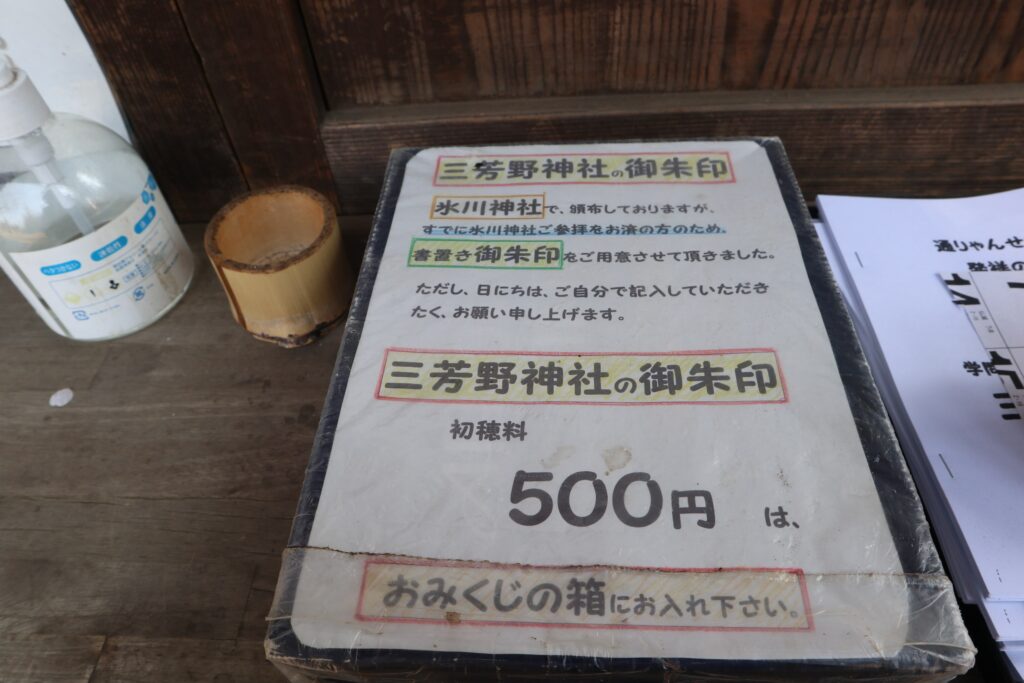 三芳野神社の御朱印
氷川神社で、頒布しておりますが、
すでに氷川神社ご参拝をお済の方のため、
書置き御朱印をご用意させて頂きました。
ただし、日にちは、ご自分で記入していただき
たく、お願い申し上げます。
三芳野神社の御朱印
初穂料
500円 は、
おみくじの箱にお入れ下さい。
通りゃんせ